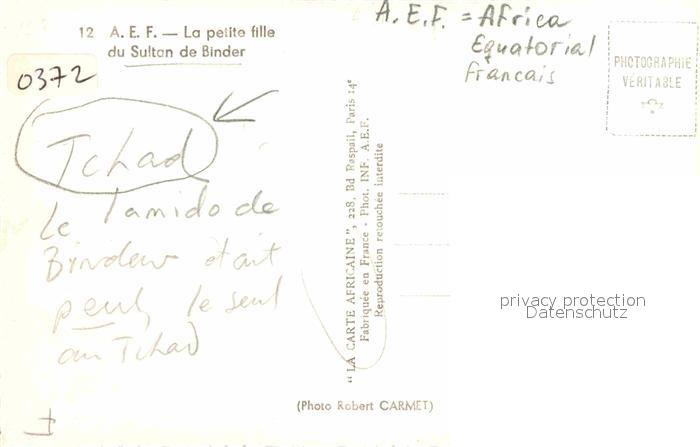 12 A. E. F. — La petite fille
du Sultan de Binder
0372
A. E. F. = AFrica
Equatorial
francais
PHOTOGRAPHIE
VÉRITABLE
Tchad
Le lamido de
Binder était
peul, le seul
au Tchad
"LA CARTE AFRICAINE", 228, Bd Raspail, Paris 14e
Fabriquée en France - Phot. INF. A.E.F.
Reproduction retouchée interdite
privacy protection
Datenschutz
(Photo Robert CARMET)